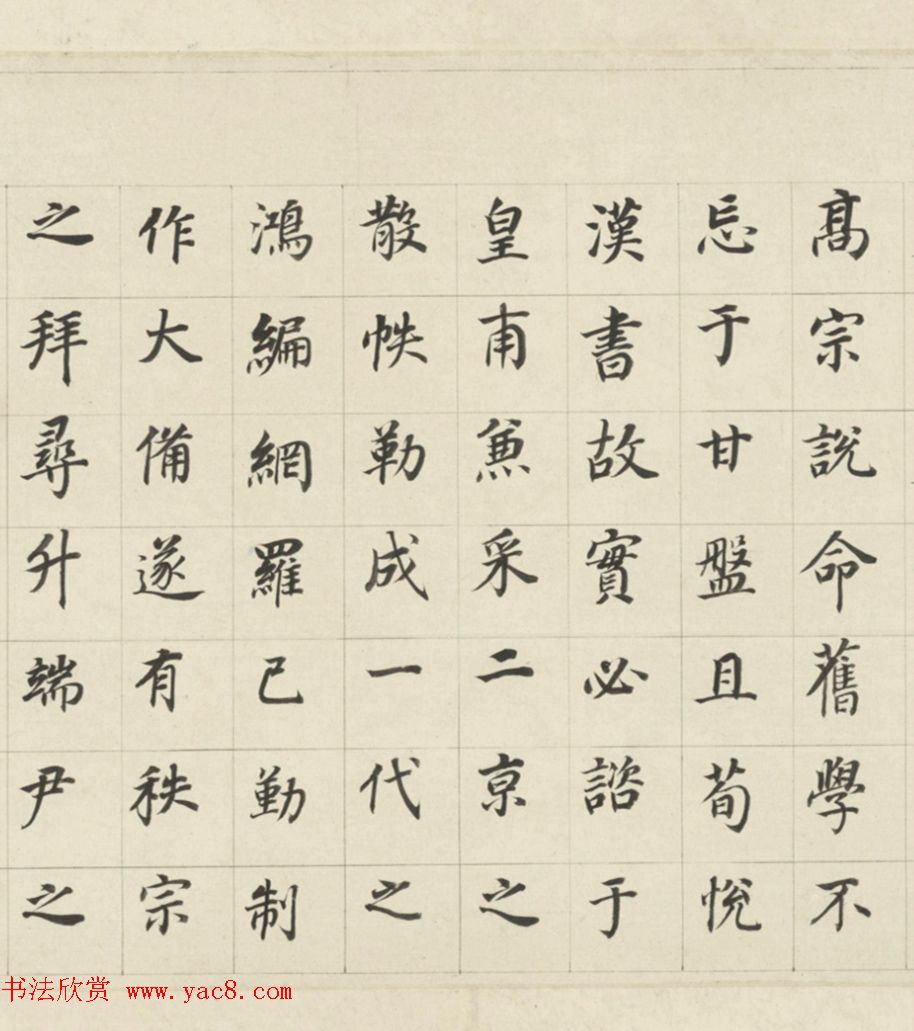 髙宗說命舊學不
忘于甘盤且荀悅
漢書故實必諮于
皇甫兼采二京之
散帙勒成一代之
鴻編網羅已勤制
作大備遂有秩宗
之拜尋升端尹之
书法欣赏 www.yac8.com